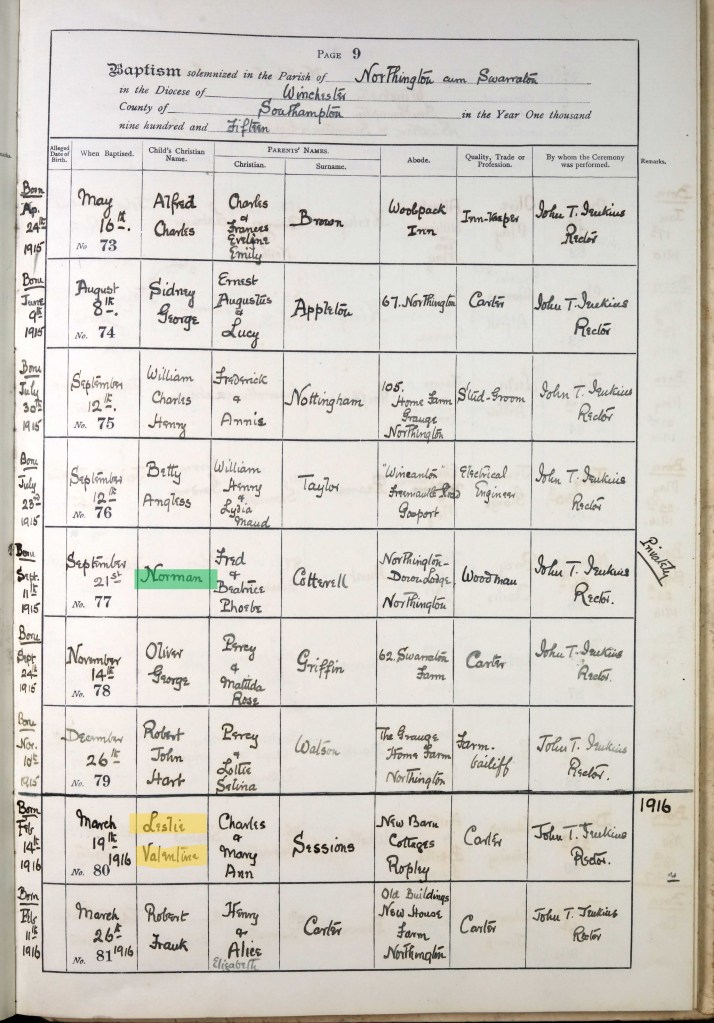 PAGE 9
Baptism solemnized in the Parish of Northington cum Swarraton
in the Diocese of Winchester
County of Southampton in the Year One thousand
nine hundred and Fifteen
Alleged Date of Birth. When Baptised. Child's Christian Name. PARENTS' NAMES. Christian. Surname. Abode. Quality, Trade or Profession. By whom the Ceremony was performed. Remarks.
Born May Alfred Charles Woolpack John T. Jenkins
Ap. 16th. Charles & Brown Inn Inn-Keeper Rector
24th Frances
1915 No. 73 Eveline
Emily
Born August Sidney Ernest
June 8th. George Augustus Appleton 67. Northington Carter John T. Jenkins
9th & Rector
1915 No. 74 Lucy
Born September William Frederick 105.
July 12th. Charles & Nottingham Home Farm Stud-Groom John T. Jenkins
30th Henry Annie Grange Rector
1915 No. 75 Northington
Born September Betty William "Wincanton" Electrical John T. Jenkins
July 12th Angless Henry Taylor Fremantle Road Engineer Rector
23rd & Gosport
1915 No. 76 Lydia
Maud
Born September Norman Fred Northington- John T. Jenkins Privately
Sept. 21st & Cotterell Down Lodge Woodman Rector.
11th Beatrice Northington
1915 No. 77 Phoebe
Born November Oliver Percy John T. Jenkins
Sept. 14th George & Griffin 62. Swarraton Carter Rector.
24th Matilda Farm
1915 No. 78 Rose
Born December Robert Percy The Grange Farm- John T. Jenkins
Nov. 26th John & Watson Home Farm bailiff Rector.
10th Hart Lottie Northington
1915 No. 79 Selina
1916
Born March Leslie Charles New Barn
Feb 19th Valentine & Sessions Cottages Carter John T. Jenkins
14th 1916 Mary Ropley Rector.
1916 No. 80 Ann
Born March Robert Henry Old Buildings
Feb 26th Frank & Carter New House Carter John T. Jenkins
11th 1916 Alice Farm Rector
1916 No. 81 Elizabeth Northington